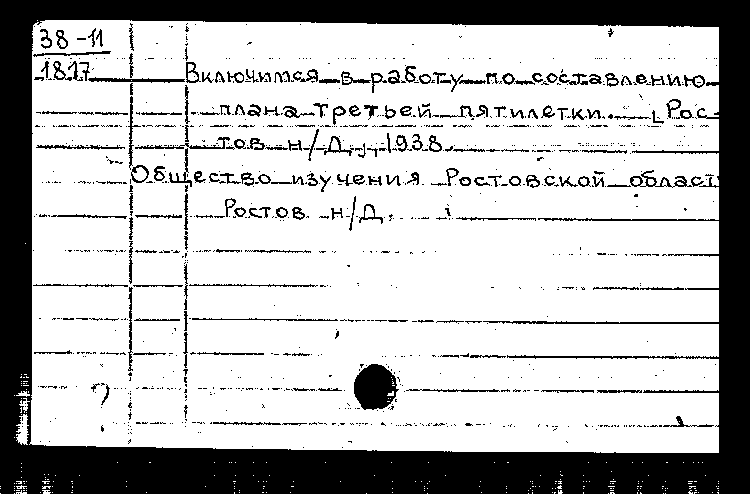 38-11
1817
Включимся в работу по составлению
плана третьей пятилетки. [Рос-
тов н/Д.], 1938.
Общество изучения Ростовской област
Ростов н/Д.
?